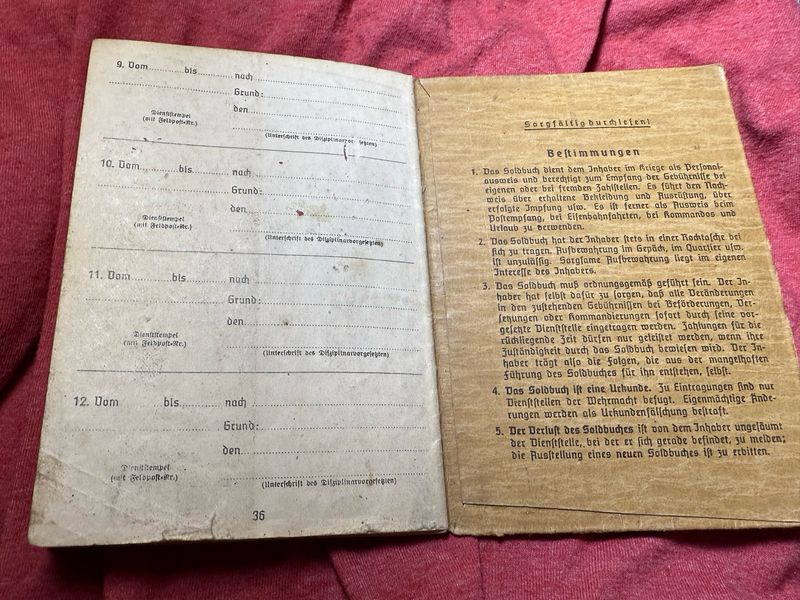 9. Vom.........bis.........nach
Grund:
den
Dienststempel
(mit Feldpost-Nr.)
(Unterschrift des Disziplinarvorgesetzten)
10. Vom.........bis.........nach
Grund:
den
Dienststempel
(mit Feldpost-Nr.)
(Unterschrift des Disziplinarvorgesetzten)
11. Vom.........bis.........nach
Grund:
den
Dienststempel
(mit Feldpost-Nr.)
(Unterschrift des Disziplinarvorgesetzten)
12. Vom.........bis.........nach
Grund:
den
Dienststempel
(mit Feldpost-Nr.)
(Unterschrift des Disziplinarvorgesetzten)
36
Sorgfältig durchlesen!
Bestimmungen
1. Das Soldbuch dient dem Inhaber im Kriege als Personal-
ausweis und berechtigt zum Empfang der Gebührnisse bei
eigenen oder bei fremden Zahlstellen. Es führt den Nach-
weis über erhaltene Bekleidung und Ausrüstung, über
erfolgte Impfung usw. Es ist ferner als Ausweis beim
Postempfang, bei Eisenbahnfahrten, bei Kommandos und
Urlaub zu verwenden.
2. Das Soldbuch hat der Inhaber stets in einer Rocktasche bei
sich zu tragen. Aufbewahrung im Gepäck, im Quartier usw.
ist unzulässig. Sorgsame Aufbewahrung liegt im eigenen
Interesse des Inhabers.
3. Das Soldbuch muß ordnungsgemäß geführt sein. Der In-
haber hat selbst dafür zu sorgen, daß alle Veränderungen
in den zustehenden Gebührnissen bei Beförderungen, Ver-
setzungen oder Kommandierungen sofort durch seine vor-
gesetzte Dienststelle eingetragen werden. Zahlungen für die
rückliegende Zeit dürfen nur geleistet werden, wenn ihre
Zuständigkeit durch das Soldbuch bewiesen wird. Der In-
haber trägt also die Folgen, die aus der mangelhaften
Führung des Soldbuches für ihn entstehen, selbst.
4. Das Soldbuch ist eine Urkunde. Zu Eintragungen sind nur
Dienststellen der Wehrmacht befugt. Eigenmächtige Ände-
rungen werden als Urkundenfälschung bestraft.
5. Der Verlust des Soldbuches ist von dem Inhaber ungesäumt
der Dienststelle, bei der er sich gerade befindet, zu melden;
die Ausstellung eines neuen Soldbuches ist zu erbitten.